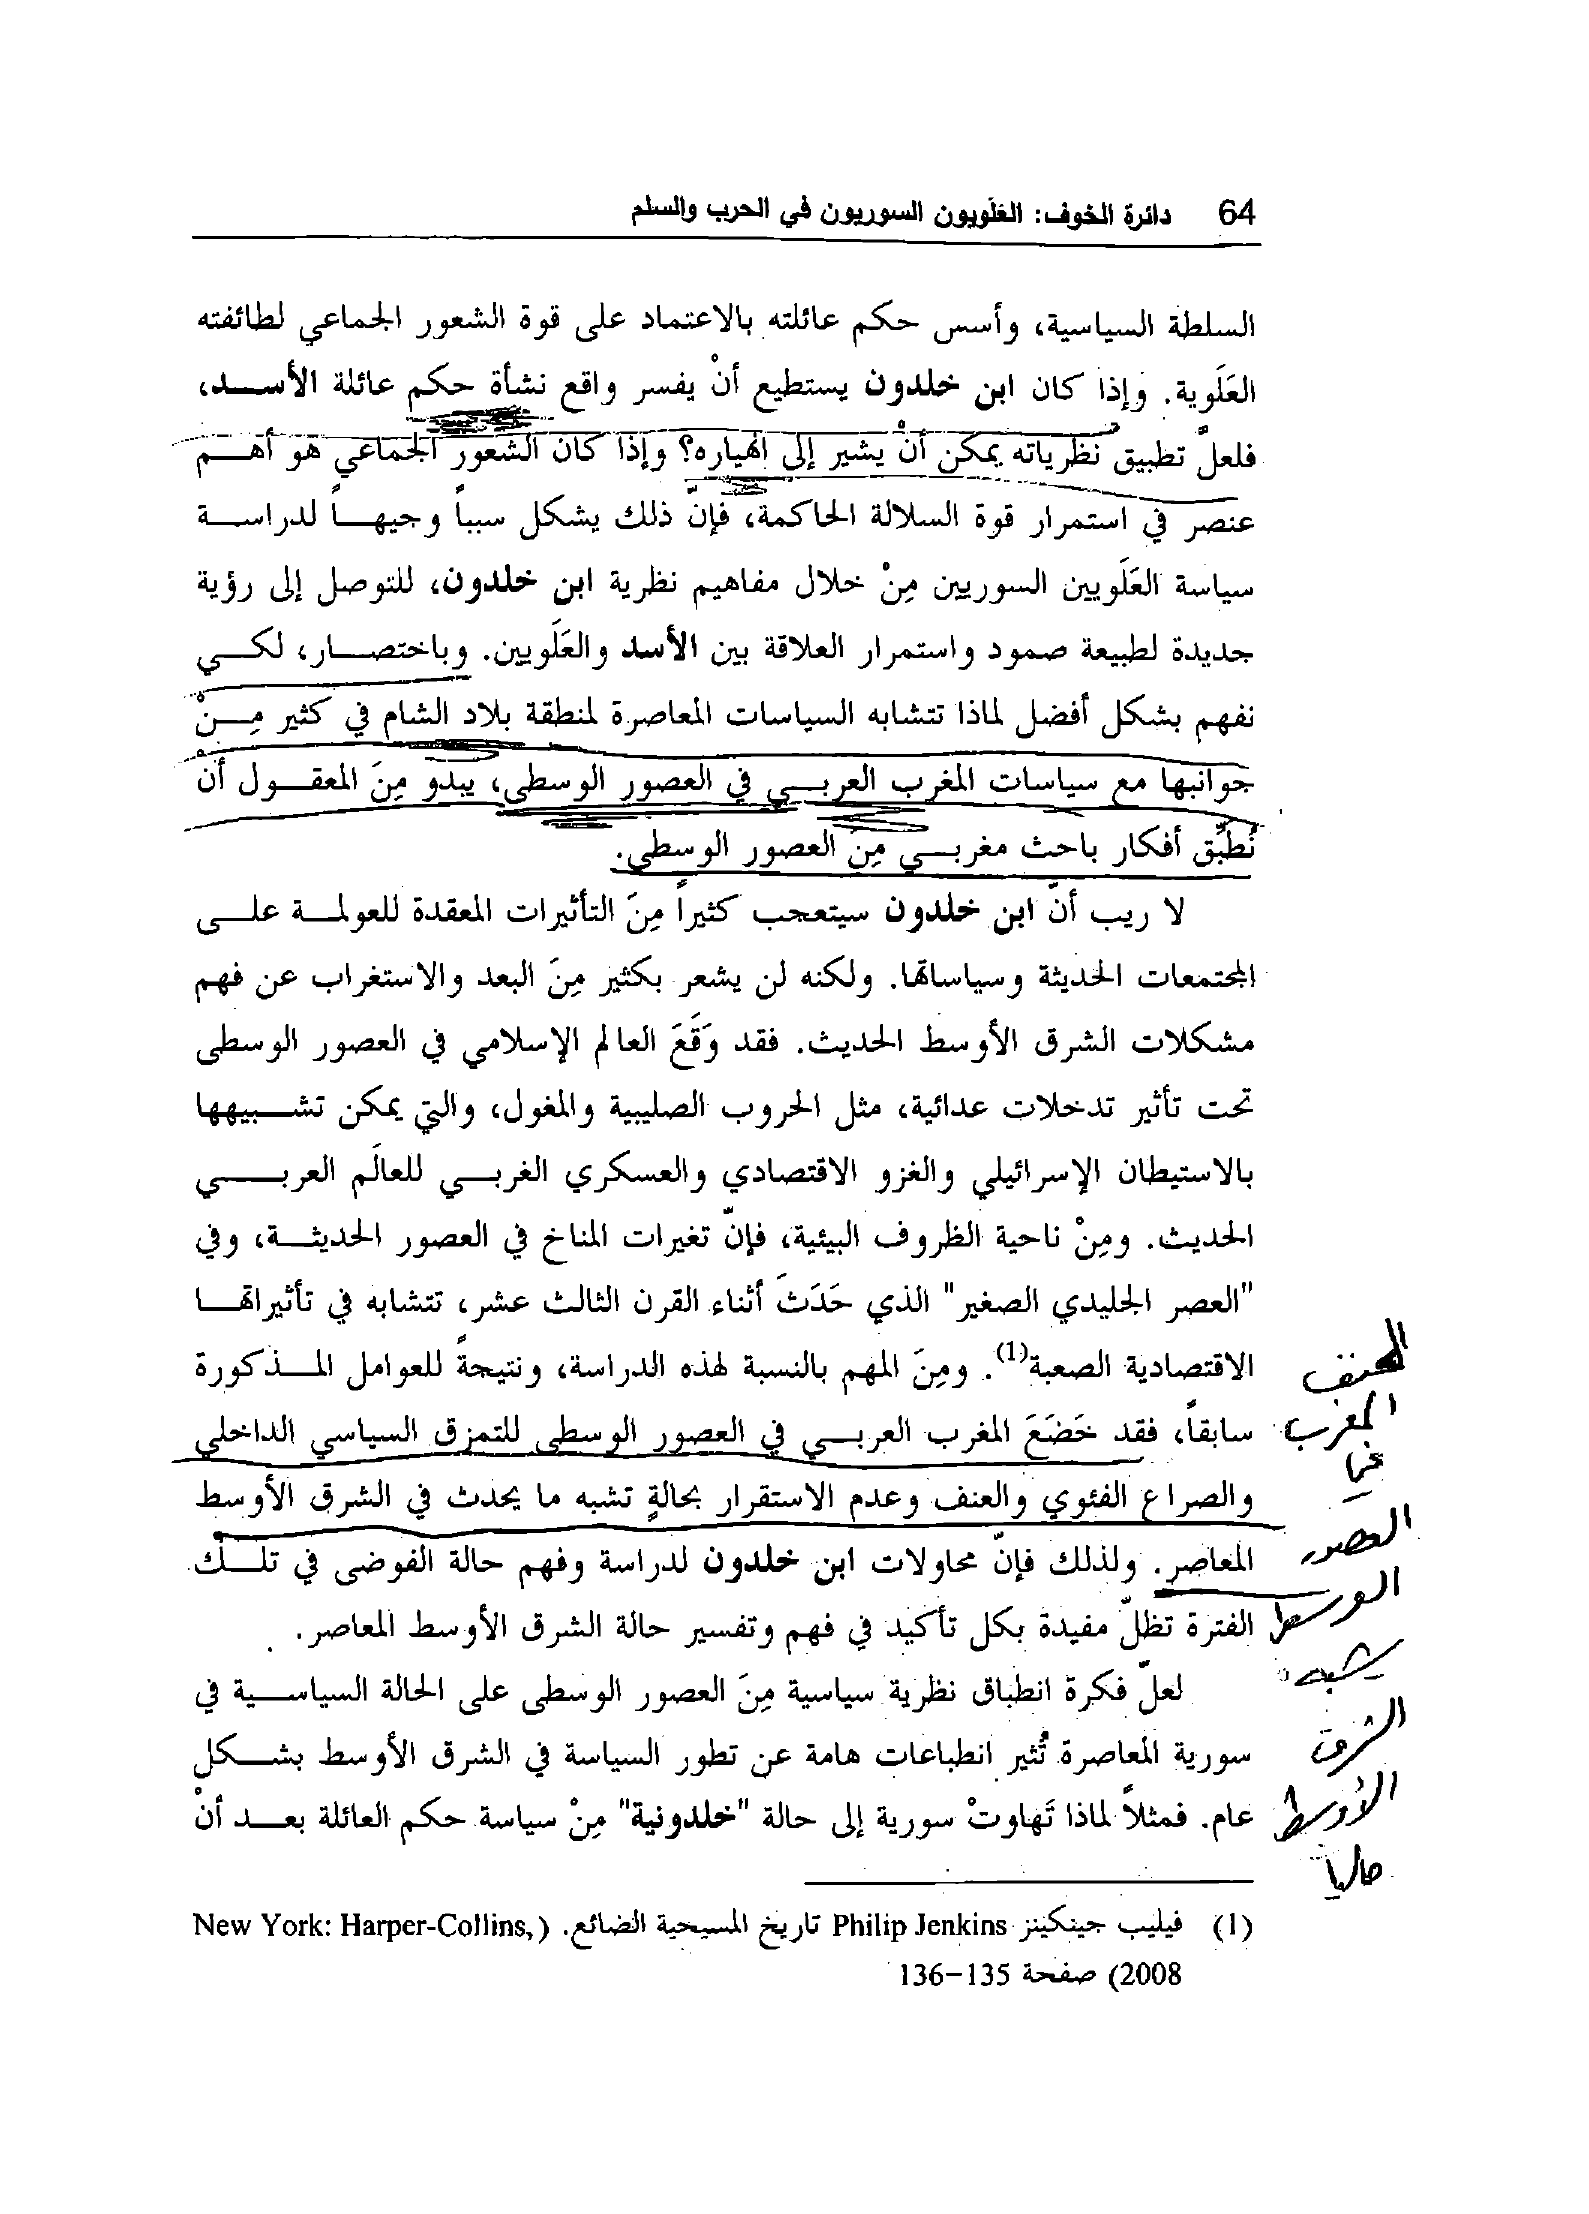 64 دائرة الخوف: العَلَويون السوريون في الحرب والسلم
السلطة السياسية، وأسس حكم عائلته بالاعتماد على قوة الشعور الجماعي لطائفته
العَلَوية. وإذا كان ابن خلدون يستطيع أنْ يفسر واقع نشأة حكم عائلة الأســد،
فلعلّ تطبيق نظرياته يمكن أنْ يشير إلى انهياره؟ وإذا كان الشعور الجماعي هو أهــم
عنصر في استمرار قوة السلالة الحاكمة، فإنّ ذلك يشكل سبباً وجيهــاً لدراســة
سياسة العَلَويين السوريين مِنْ خلال مفاهيم نظرية ابن خلدون، للتوصل إلى رؤية
جديدة لطبيعة صمود واستمرار العلاقة بين الأسد والعَلَويين. وباختصــار، لكــي
نفهم بشكل أفضل لماذا تتشابه السياسات المعاصرة لمنطقة بلاد الشام في كثير مِــنْ
جوانبها مع سياسات المغرب العربــي في العصور الوسطى، يبدو مِنَ المعقــول أنْ
نُطبِّق أفكار باحث مغربــي مِنَ العصور الوسطى.
لا ريب أنّ ابن خلدون سيتعجب كثيراً مِنَ التأثيرات المعقدة للعولمــة علــى
المجتمعات الحديثة وسياساتها. ولكنه لن يشعر بكثير مِنَ البعد والاستغراب عن فهم
مشكلات الشرق الأوسط الحديث. فقد وَقَعَ العالم الإسلامي في العصور الوسطى
تحت تأثير تدخلات عدائية، مثل الحروب الصليبية والمغول، والتي يمكن تشــبيهها
بالاستيطان الإسرائيلي والغزو الاقتصادي والعسكري الغربــي للعالَم العربــــي
الحديث. ومِنْ ناحية الظروف البيئية، فإنّ تغيرات المناخ في العصور الحديثــة، وفي
"العصر الجليدي الصغير" الذي حَدَثَ أثناء القرن الثالث عشر، تتشابه في تأثيراتهــا
الاقتصادية الصعبة(1). ومِنَ المهم بالنسبة لهذه الدراسة، ونتيجةً للعوامل المــذكورة
سابقاً، فقد خَضَعَ المغرب العربــي في العصور الوسطى للتمزق السياسي الداخلي
والصراع الفئوي والعنف وعدم الاستقرار بحالةٍ تشبه ما يحدث في الشرق الأوسط
المعاصر. ولذلك فإنّ محاولات ابن خلدون لدراسة وفهم حالة الفوضى في تلــك
الفترة تظلّ مفيدة بكل تأكيد في فهم وتفسير حالة الشرق الأوسط المعاصر.
لعلّ فكرة انطباق نظرية سياسية مِنَ العصور الوسطى على الحالة السياســية في
سورية المعاصرة تُثير انطباعات هامة عن تطور السياسة في الشرق الأوسط بشــكل
عام. فمثلاً لماذا تَهاوتْ سورية إلى حالة "خلدونية" مِنْ سياسة حكم العائلة بعــد أنْ
العنف
المغرب
في
العصور
الوسطى
شبيه
الشرق
الأوسط
حاليا
(1) فيليب جينكينز Philip Jenkins تاريخ المسيحية الضائع. (New York: Harper-Collins,
2008) صفحة 135-136